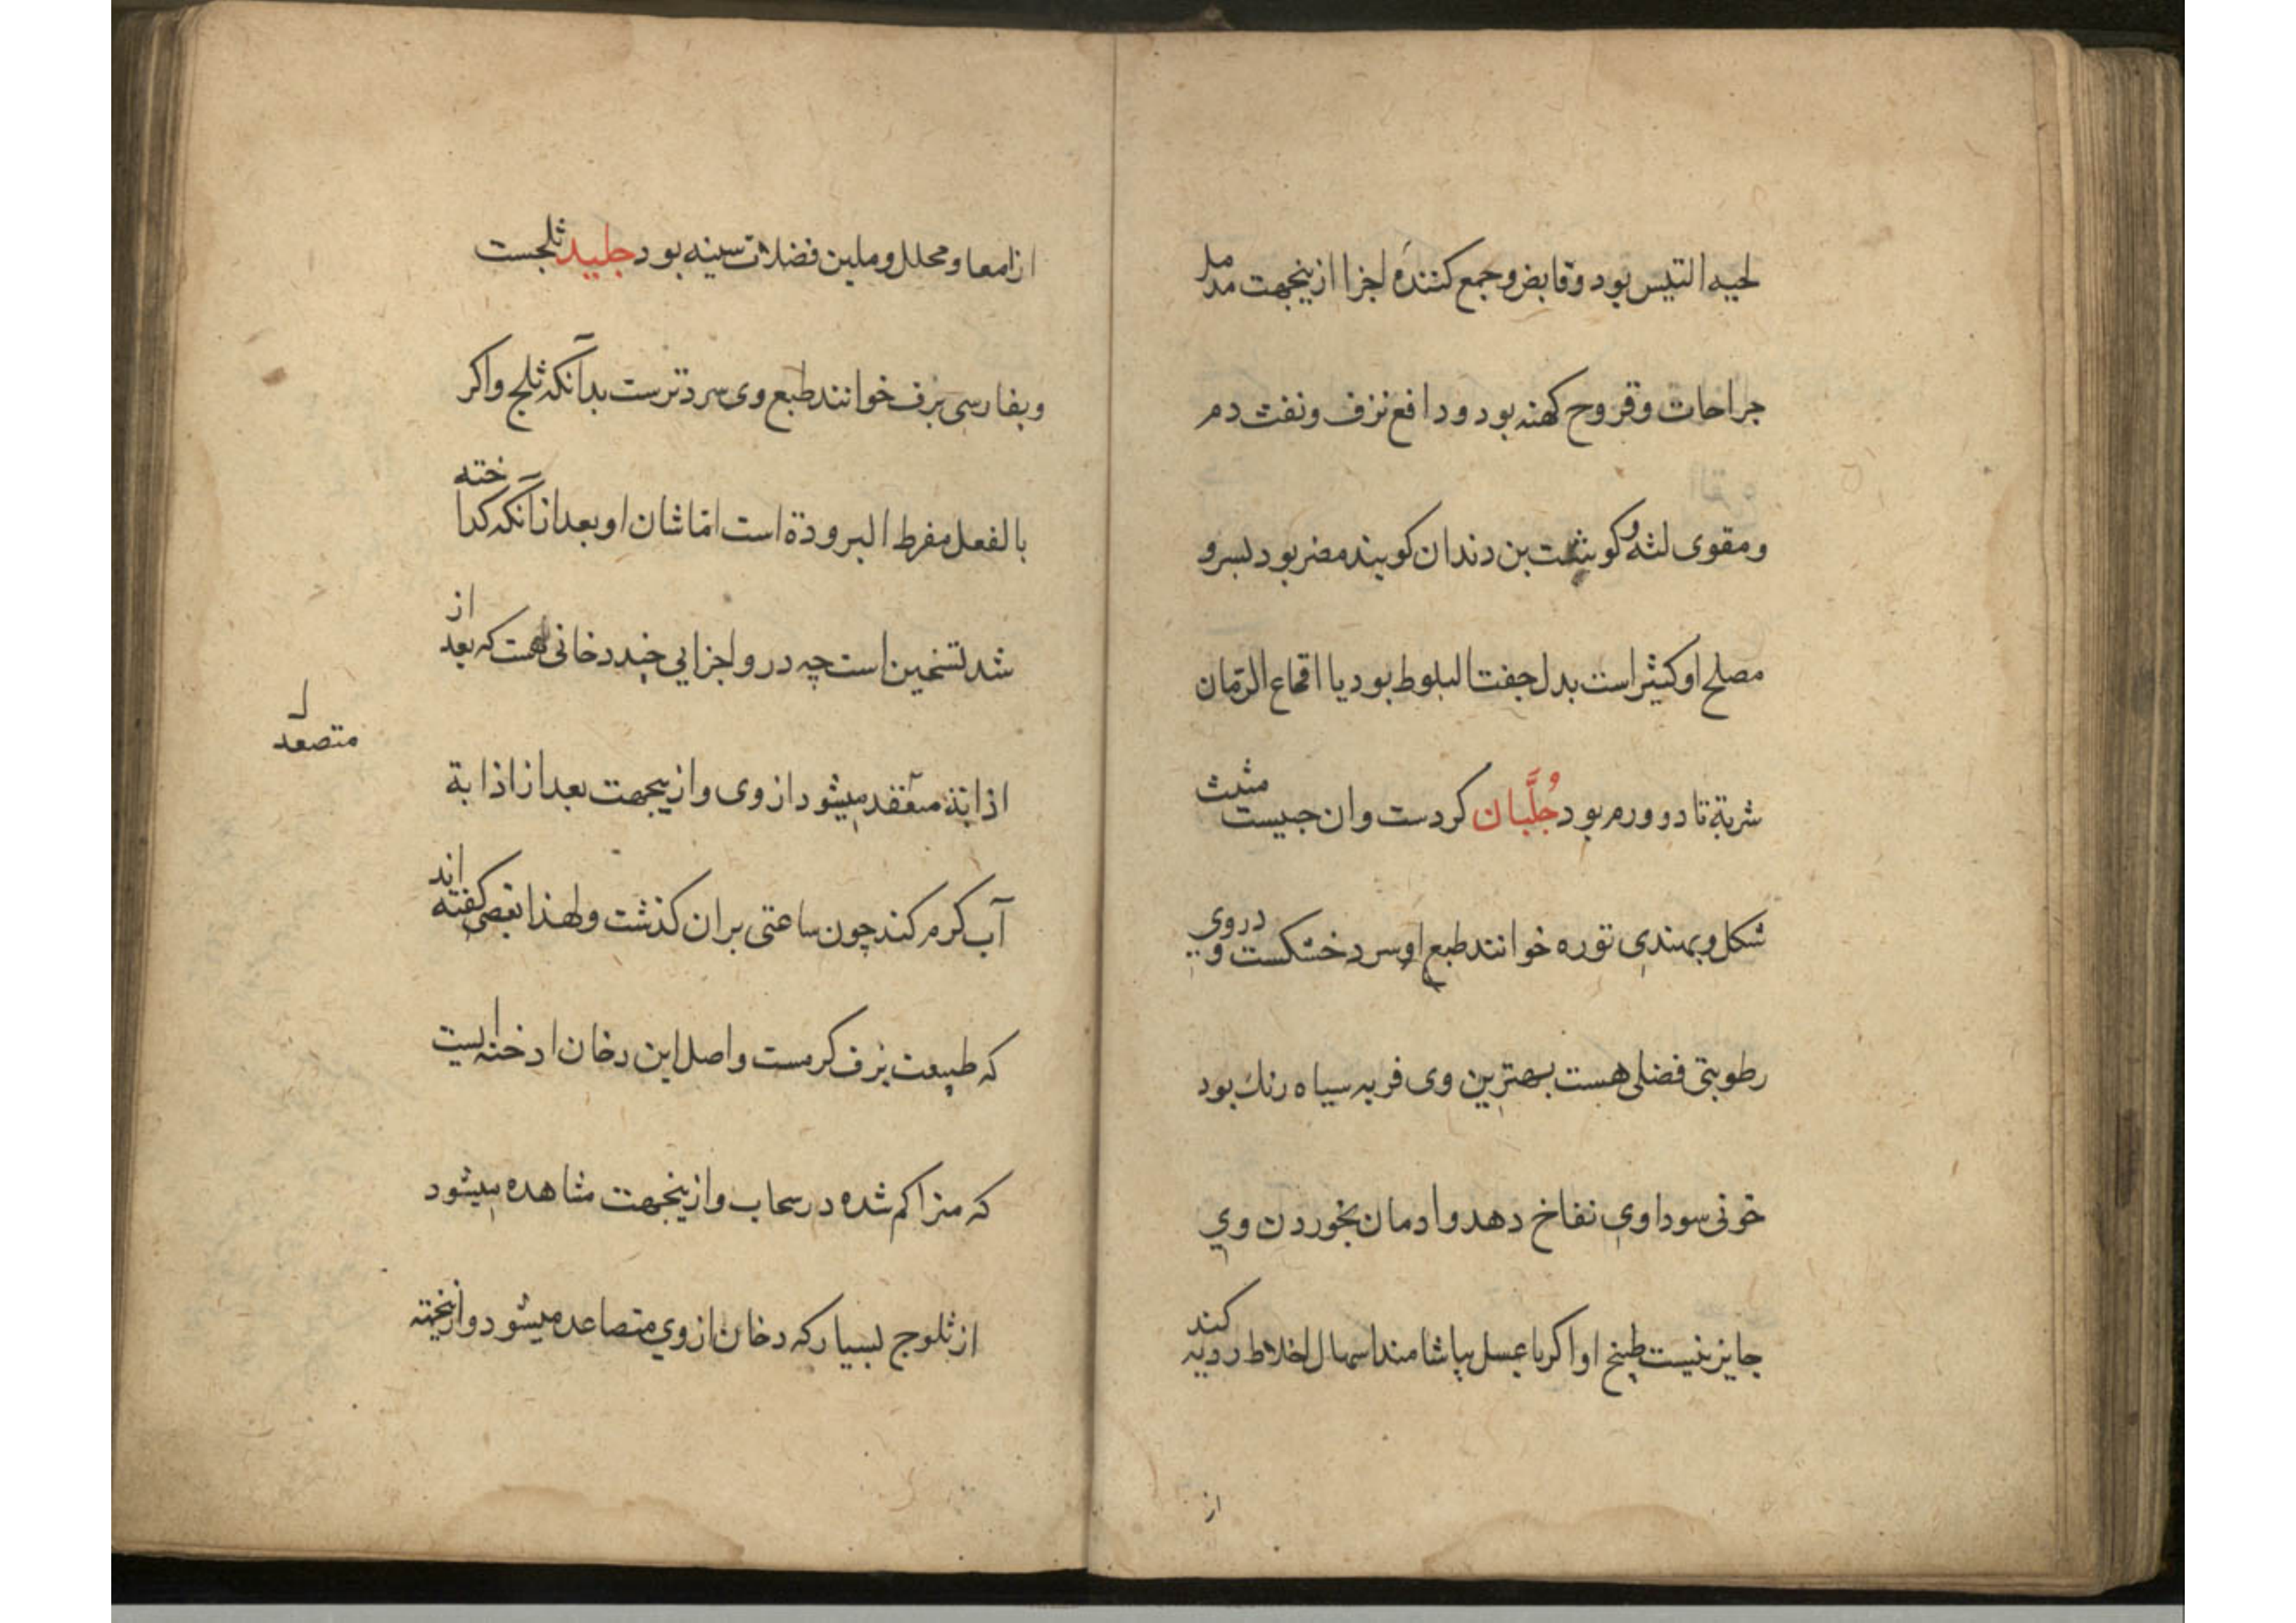 لحیه التیس بود وقابض وجمع کننده اجزا ازینجهت مدمل
جراحات وقروح کهنه بود ودافع نزف ونفث دم
ومقوی لثه وکوشت بن دندان کویند مضر بود بسرو
مصلح او کثیراست بدل جفت البلوط بود یا اقماع الرمان
شربة تا دو ورم بود جُلَّبان کردست وان جیست مثلث
شکل وبهندی توره خوانند طبع او سرد خشکست و دروی
رطوبتی فضلی هست بهترین وی فربه سیاه رنك بود
خونی سوداوی نفاخ دهد وادمان بخوردن وی
جایز نیست طبخ او اکر با عسل بیاشامند اسهال اخلاط ردیه کند
از
از امعا ومحلل وملین فضلات سینه بود جلید ثلجست
وبفارسی برف خوانند طبع وی سردترست بدآنکه ثلج واکر
بالفعل مفرط البرودة است امّا شان او بعد ازآنکه کداخته
شد تسخین است چه درو اجزایی چند دخانی هست که بعد از
متصعد
اذابة منعقد میشود از وی وازیجهت بعد از اذابة
آب کرم کند چون ساعتی بران کذشت ولهذا بعضی کفته اند
که طبیعت برف کرمست واصل این دخان ادخنه ایست
که متراکم شده در سحاب وازینجهت مشاهده میشود
از ثلوج بسیار که دخان از وی متصاعد میشود وازینجهة